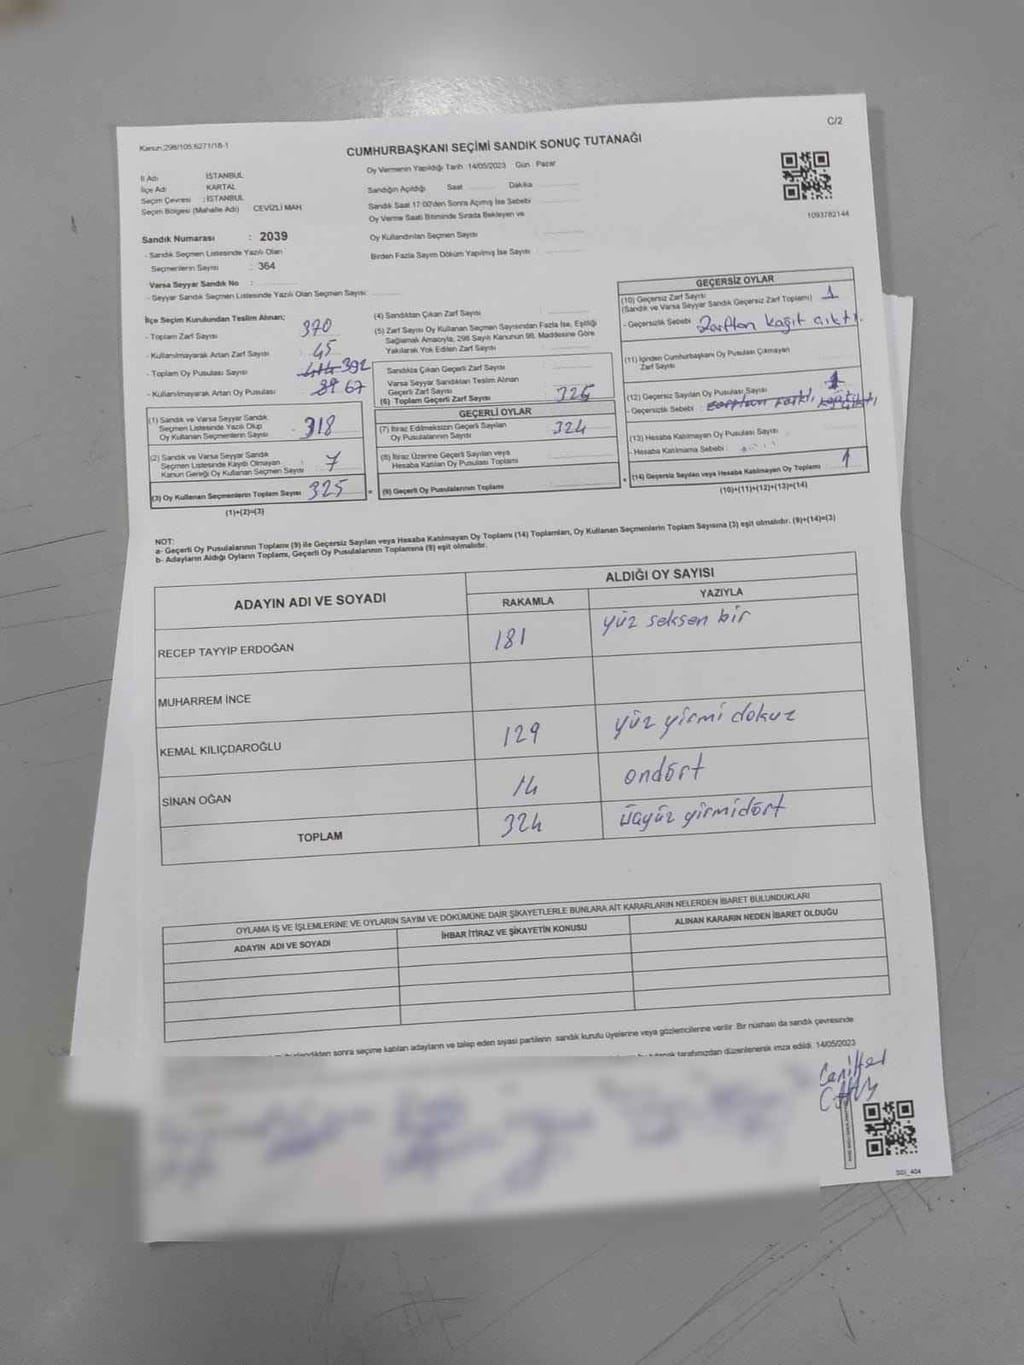 Kanun:298/105;6271/18-1
C/2
CUMHURBAŞKANI SEÇİMİ SANDIK SONUÇ TUTANAĞI
Oy Vermenin Yapıldığı Tarih :14/05/2023 Gün : Pazar
İl Adı : İSTANBUL
İlçe Adı : KARTAL
Seçim Çevresi : İSTANBUL
Seçim Bölgesi (Mahalle Adı) CEVİZLİ MAH.
Sandığın Açıldığı Saat Dakika
Sandık Saat 17:00'den Sonra Açılmış İse Sebebi
Oy Verme Saati Bitiminde Sırada Bekleyen ve
Oy Kullandırılan Seçmen Sayısı
Birden Fazla Sayım Döküm Yapılmış İse Sayısı
1093782144
Sandık Numarası : 2039
- Sandık Seçmen Listesinde Yazılı Olan
Seçmenlerin Sayısı : 364
Varsa Seyyar Sandık No :
- Seyyar Sandık Seçmen Listesinde Yazılı Olan Seçmen Sayısı:
İlçe Seçim Kurulundan Teslim Alınan;
- Toplam Zarf Sayısı 370
- Kullanılmayarak Artan Zarf Sayısı 45
- Toplam Oy Pusulası Sayısı 392
- Kullanılmayarak Artan Oy Pusulası 67
(1) Sandık ve Varsa Seyyar Sandık
Seçmen Listesinde Yazılı Olup
Oy Kullanan Seçmenlerin Sayısı 318
(2) Sandık ve Varsa Seyyar Sandık
Seçmen Listesinde Kayıtlı Olmayan
Kanun Gereği Oy Kullanan Seçmen Sayısı 7
(3) Oy Kullanan Seçmenlerin Toplam Sayısı 325
(1)+(2)=(3)
(4) Sandıktan Çıkan Zarf Sayısı
(5) Zarf Sayısı Oy Kullanan Seçmen Sayısından Fazla İse, Eşitliği
Sağlamak Amacıyla, 298 Sayılı Kanunun 98. Maddesine Göre
Yakılarak Yok Edilen Zarf Sayısı
Sandıkta Çıkan Geçerli Zarf Sayısı
Varsa Seyyar Sandıktan Teslim Alınan
Geçerli Zarf Sayısı
(6) Toplam Geçerli Zarf Sayısı
GEÇERLİ OYLAR
(7) İtiraz Edilmeksizin Geçerli Sayılan
Oy Pusulalarının Sayısı 324
(8) İtiraz Üzerine Geçerli Sayılan veya
Hesaba Katılan Oy Pusulası Toplamı
(9) Geçerli Oy Pusulalarının Toplamı
GEÇERSİZ OYLAR
(10) Geçersiz Zarf Sayısı
(Sandık ve Varsa Seyyar Sandık Geçersiz Zarf Toplamı) 1
- Geçersizlik Sebebi : Zarftan kağıt çıktı.
(11) İçinden Cumhurbaşkanı Oy Pusulası Çıkmayan
Zarf Sayısı
(12) Geçersiz Sayılan Oy Pusulası Sayısı
- Geçersizlik Sebebi :
(13) Hesaba Katılmayan Oy Pusulası Sayısı
- Hesaba Katılmama Sebebi :
(14) Geçersiz Sayılan veya Hesaba Katılmayan Oy Toplamı 1
(10)+(11)+(12)+(13)=(14)
NOT:
a- Geçerli Oy Pusulalarının Toplamı (9) ile Geçersiz Sayılan veya Hesaba Katılmayan Oy Toplamı (14) Toplamları, Oy Kullanan Seçmenlerin Toplam Sayısına (3) eşit olmalıdır. (9)+(14)=(3)
b- Adayların Aldığı Oyların Toplamı, Geçerli Oy Pusulalarının Toplamına (9) eşit olmalıdır.
ADAYIN ADI VE SOYADI
ALDIĞI OY SAYISI
RAKAMLA YAZIYLA
RECEP TAYYİP ERDOĞAN 181 yüz seksen bir
MUHARREM İNCE
KEMAL KILIÇDAROĞLU 129 yüz yirmi dokuz
SİNAN OĞAN 14 ondört
TOPLAM 324 üçyüz yirmidört
OYLAMA İŞ VE İŞLEMLERİNE VE OYLARIN SAYIM VE DÖKÜMÜNE DAİR ŞİKAYETLERLE BUNLARA AİT KARARLARIN NELERDEN İBARET BULUNDUKLARI
ADAYIN ADI VE SOYADI İHBAR İTİRAZ VE ŞİKAYETİN KONUSU ALINAN KARARIN NEDEN İBARET OLDUĞU
sonra seçime katılan adayların ve talep eden siyasi partilerin sandık kurulu üyelerine veya gözlemcilerine verilir. Bir nüshası da sandık çevresinde
tarafımızdan düzenlenerek imza edildi. 14/05/2023
SGI_404